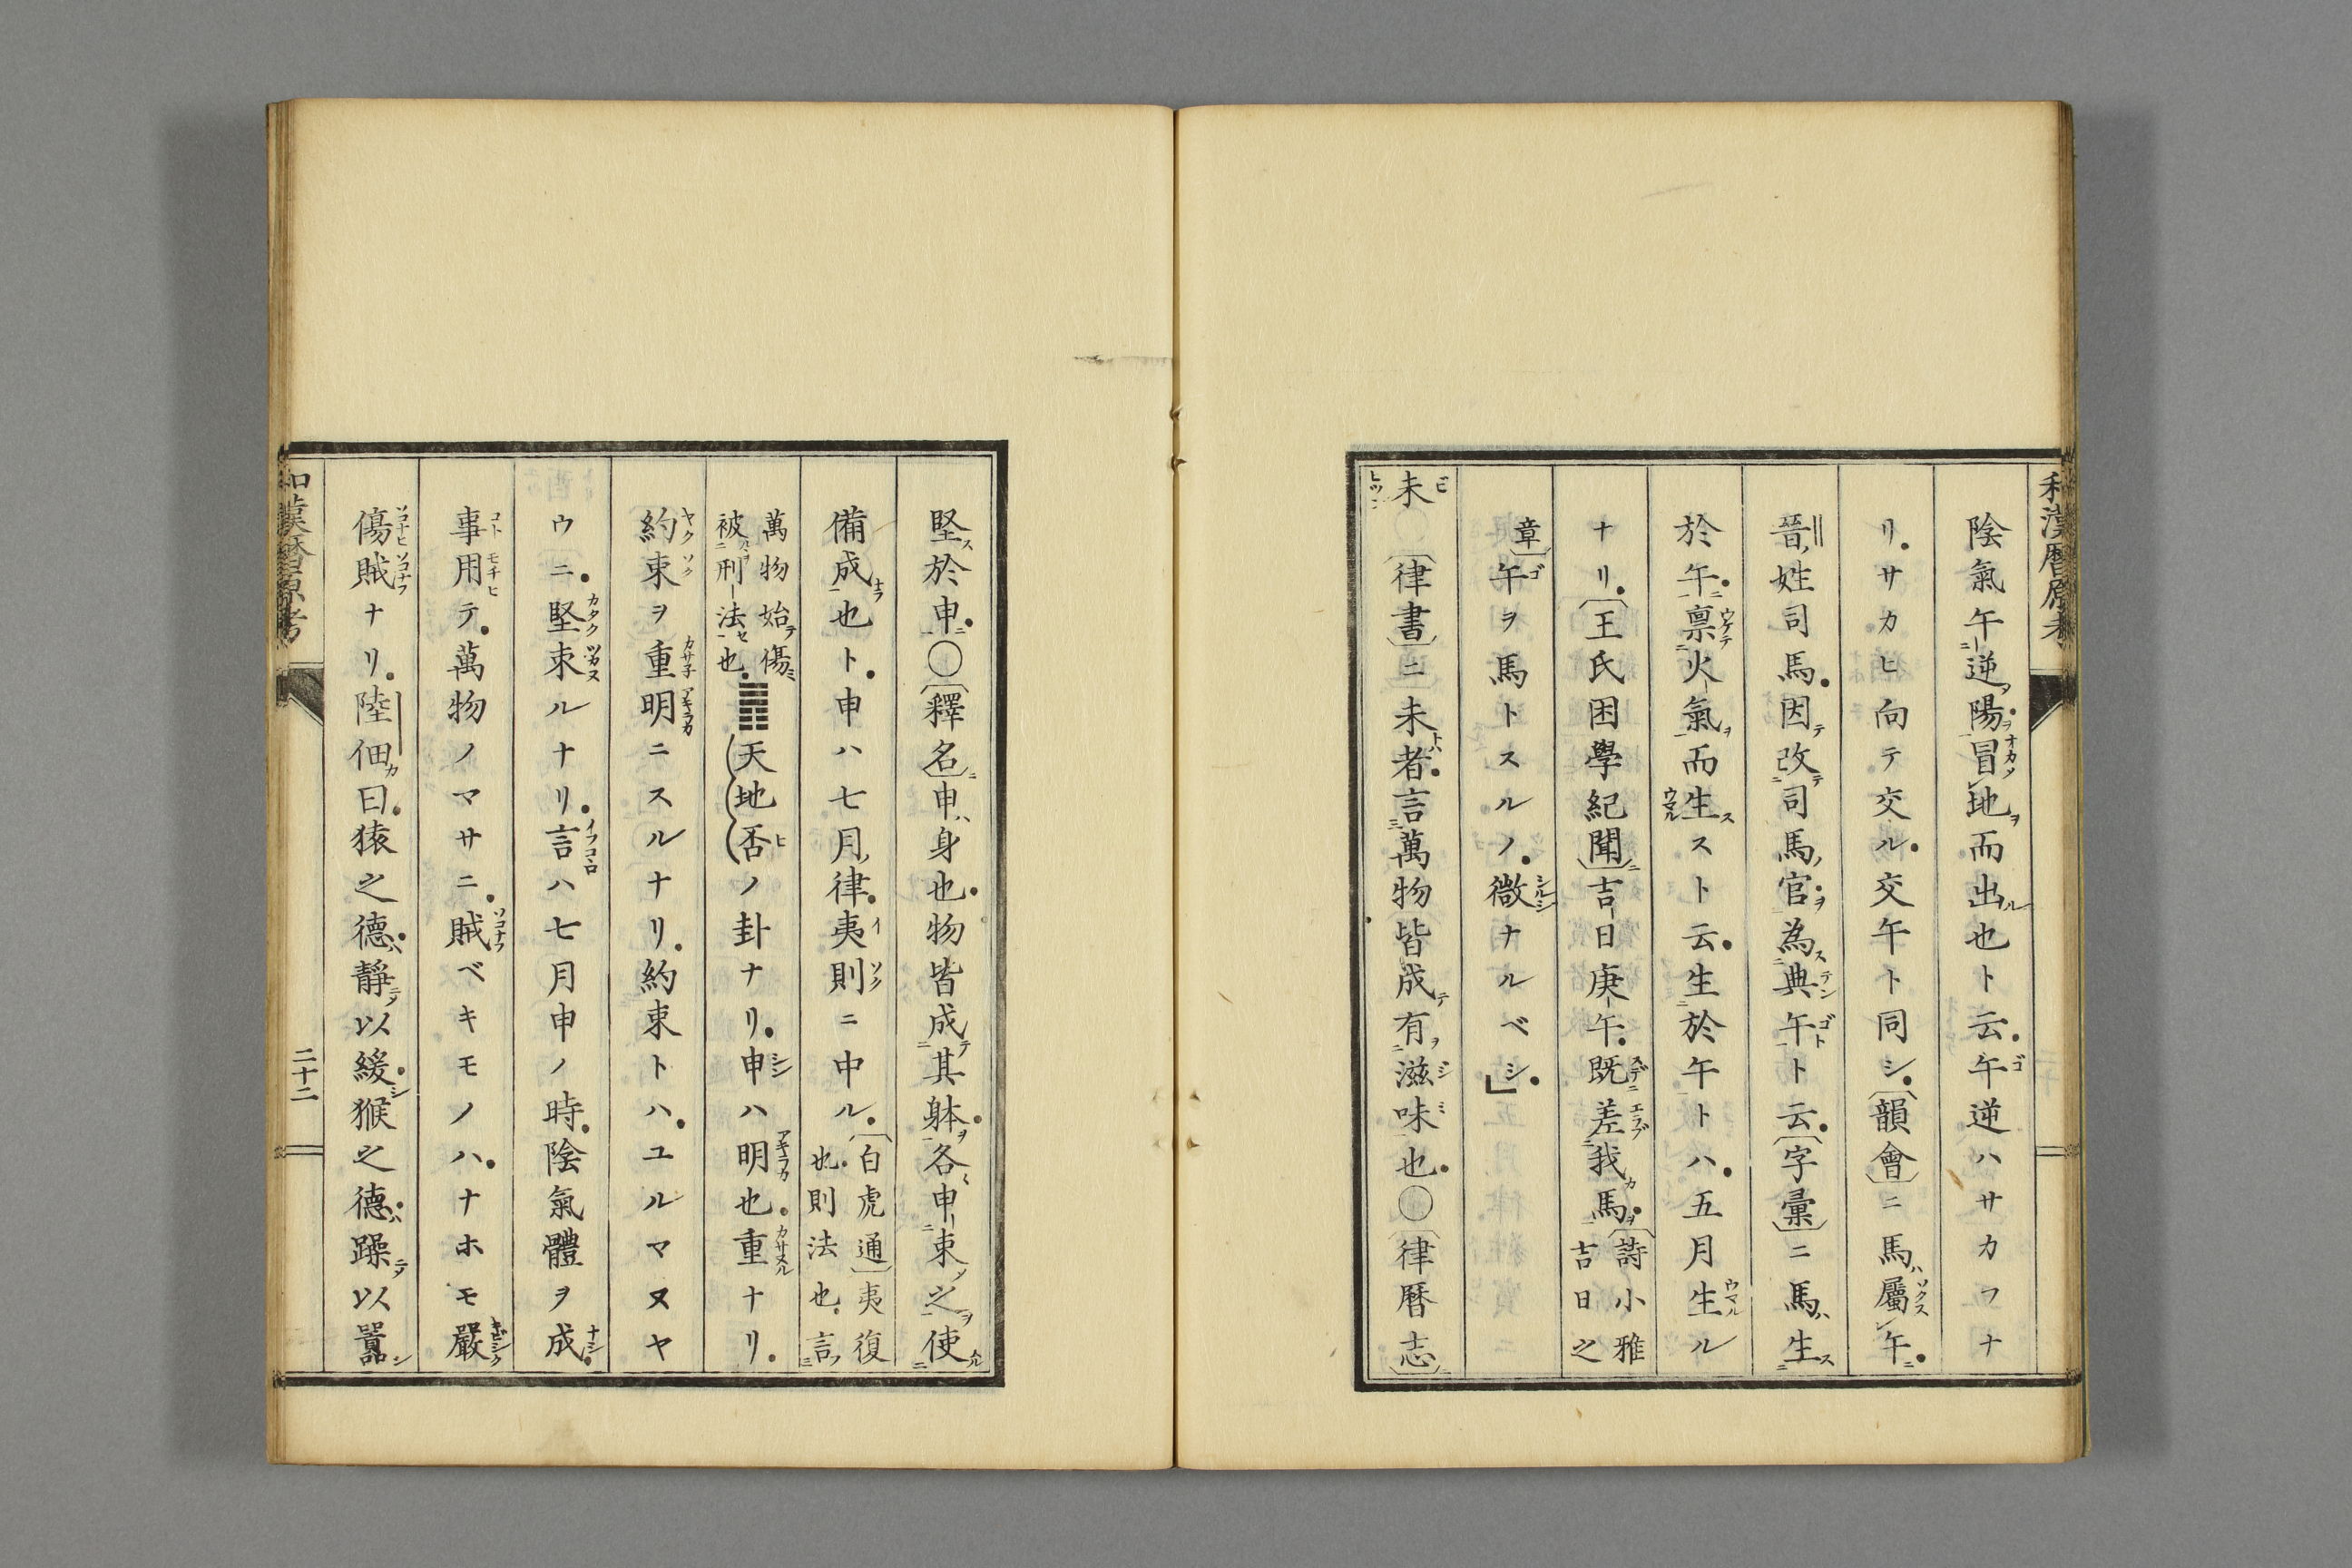 陰氣午逆陽冒地而出也ト云午逆ハサカフナ
リサカヒ向テ交ル交午ト同シ〔韻會〕ニ馬屬午
晉姓司馬因改司馬官為典午ト云〔字彙〕ニ馬生
於午稟火氣而生スト云生於午トハ五月生ル
ナリ〔王氏困學紀聞〕吉日庚午既差我馬〔詩小雅
吉日之
章〕午ヲ馬トスルノ徴ナルベシ」
未〔律書〕ニ未者言萬物皆成有滋味也〇〔律曆志〕
堅於申〇〔釋名〕申身也物皆成其躰各申束之使
備成也ト申ハ七月律夷則ニ中ル〔白虎通〕夷復
也則法也言
萬物始傷
被刑法也䷋天地否ノ卦ナリ申ハ明也重ナリ
約束ヲ重明ニスルナリ約束トハユルマヌヤ
ウニ堅束ルナリ言ハ七月申ノ時陰氣體ヲ成
事用テ萬物ノマサニ賊ベキモノハナホモ嚴
傷賊ナリ陸佃曰猿之德靜以緩猴之德躁以囂
二十二